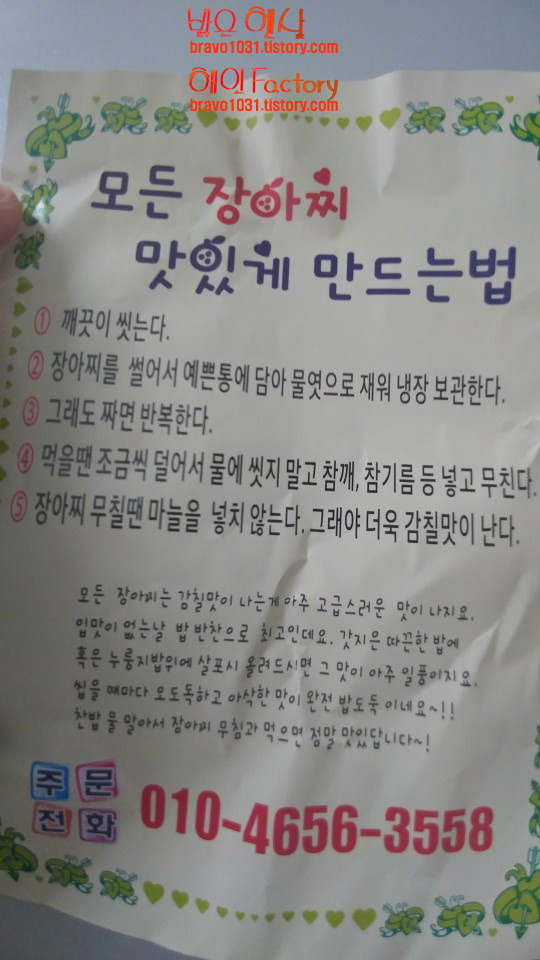 밝은 햇살
bravo1031.tistory.com
해인 Factory
bravo1031.tistory.com
모든 장아찌
맛있게 만드는법
① 깨끗이 씻는다.
② 장아찌를 썰어서 예쁜통에 담아 물엿으로 재워 냉장 보관한다.
③ 그래도 짜면 반복한다.
④ 먹을땐 조금씩 덜어서 물에 씻지 말고 참깨, 참기름 등 넣고 무친다.
⑤ 장아찌 무칠땐 마늘을 넣치 않는다. 그래야 더욱 감칠맛이 난다.
모든 장아찌는 감칠맛이 나는게 아주 고급스러운 맛이 나지요.
입맛이 없는날 밥 반찬으로 최고인데요. 갓지은 따끈한 밥에
혹은 누룽지밥위에 살포시 올려드시면 그 맛이 아주 일품이지요.
씹을 때마다 오도독하고 아삭한 맛이 완전 밥도둑 이네요~!!
찬밥 물 말아서 장아찌 무침과 먹으면 정말 맛있답니다~!
주문
전화 010-4656-3558